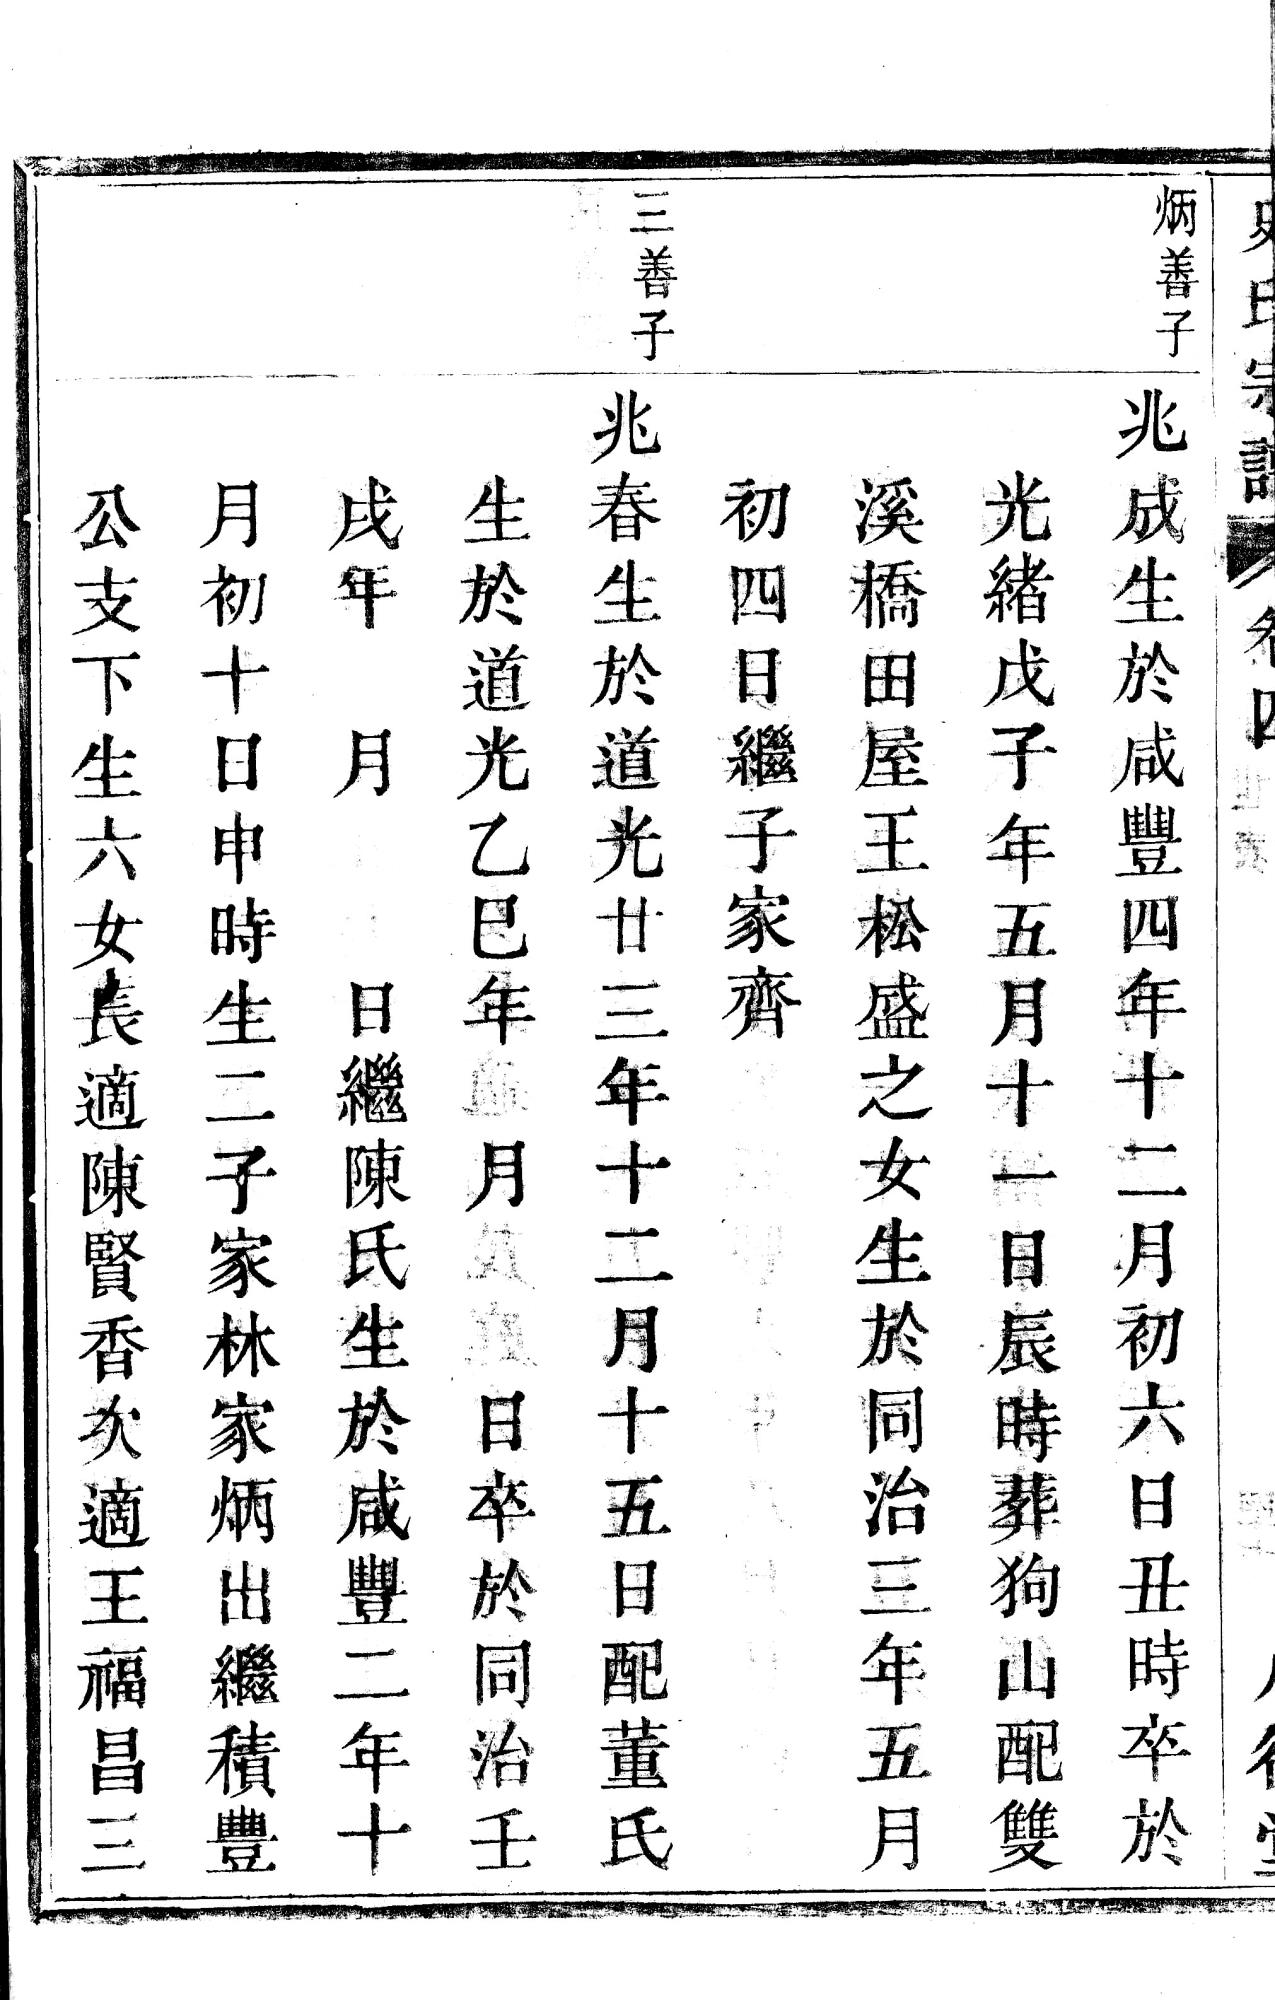 史氏宗譜 卷四
炳善子
兆成生於咸豐四年十二月初六日丑時卒於
光緒戊子年五月十一日辰時葬狗山配雙
溪橋田屋王松盛之女生於同治三年五月
初四日繼子家齊
三善子
兆春生於道光廿三年十二月十五日配董氏
生於道光乙巳年 月 日卒於同治壬
戌年 月 日繼陳氏生於咸豐二年十
月初十日申時生二子家林家炳出繼積豐
公支下生六女長適陳賢香次適王福昌三